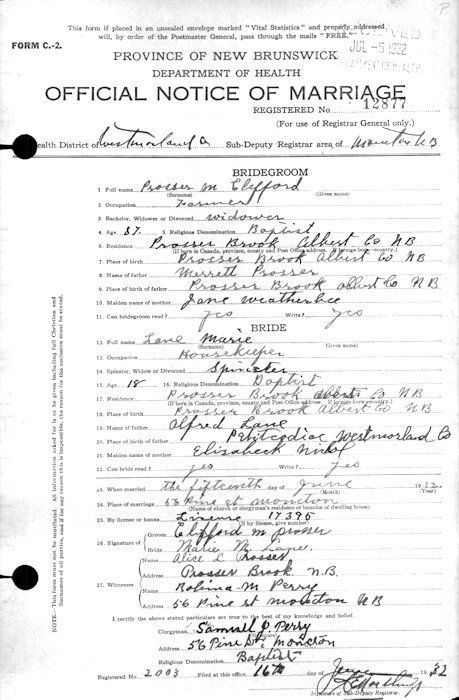 This form if placed in an unsealed envelope marked "Vital Statistics" and properly addressed
will, by order of the Postmaster General, pass through the mails "FREE."
FORM C.-2.
JUL -5 1932
PROVINCE OF NEW BRUNSWICK
DEPARTMENT OF HEALTH
OFFICIAL NOTICE OF MARRIAGE
REGISTERED No. 12877
(For use of Registrar General only.)
Health District of Westmorland Co Sub-Deputy Registrar area of Moncton N B
BRIDEGROOM
1. Full name Prosser M Clifford
(Surname) (Given names)
2. Occupation Farmer
3. Bachelor, Widower or Divorced widower
4. Age 37. 5. Religious Denomination Baptist
6. Residence Prosser Brook Albert Co NB
(If born in Canada, province, county and Post Office address. If foreign born—country.)
7. Place of birth Prosser Brook Albert Co NB
8. Name of father Merrett Prosser
9. Place of birth of father Prosser Brook Albert Co N B
10. Maiden name of mother Jane Weatherbee
11. Can bridegroom read? yes Write? yes
BRIDE
12. Full name Lane Marie
(Surname) (Given names)
13. Occupation Housekeeper
14. Spinster, Widow or Divorced Spinister
15. Age 18 16. Religious Denomination Baptist
17. Residence Prosser Brook Albert N B
(If born in Canada, province, county and Post Office address. If foreign born—country.)
18. Place of birth Prosser Brook Albert Co N B
19. Name of father Alfred Lane
20. Place of birth of father Petitcodiac Westmorland Co
21. Maiden name of mother Elisabeth
22. Can bride read? yes Write? yes
23. When married the fifteenth day of June 1932
(Month) (Year)
24. Place of marriage 56 Pine st Moncton
(Name of church or clergyman's residence or location of dwelling house)
25. By license or banns License 17395
(If by license, give number)
26. Signature of Groom Clifford M Prosser
Bride Marie M. Lane.
Alice L Prosser
Address Prosser Brook N.B.
27. Witnesses Robena M Perry
Address 56 Pine st Moncton N B
I certify the above stated particulars are true to the best of my knowledge and belief.
Clergyman Samuel J Perry
Address 56 Pine St, Moncton
Religious Denomination Baptist
Registered No. 2003 Filed at this office 16th day of June 1932
Signature of Sub-Deputy Registrar.
NOTE.—This form must not be mutilated. All information asked for is to be given including full Christian and
Surnames of all parties, and if for any reason this is impossible, the reason for the omission must be stated.